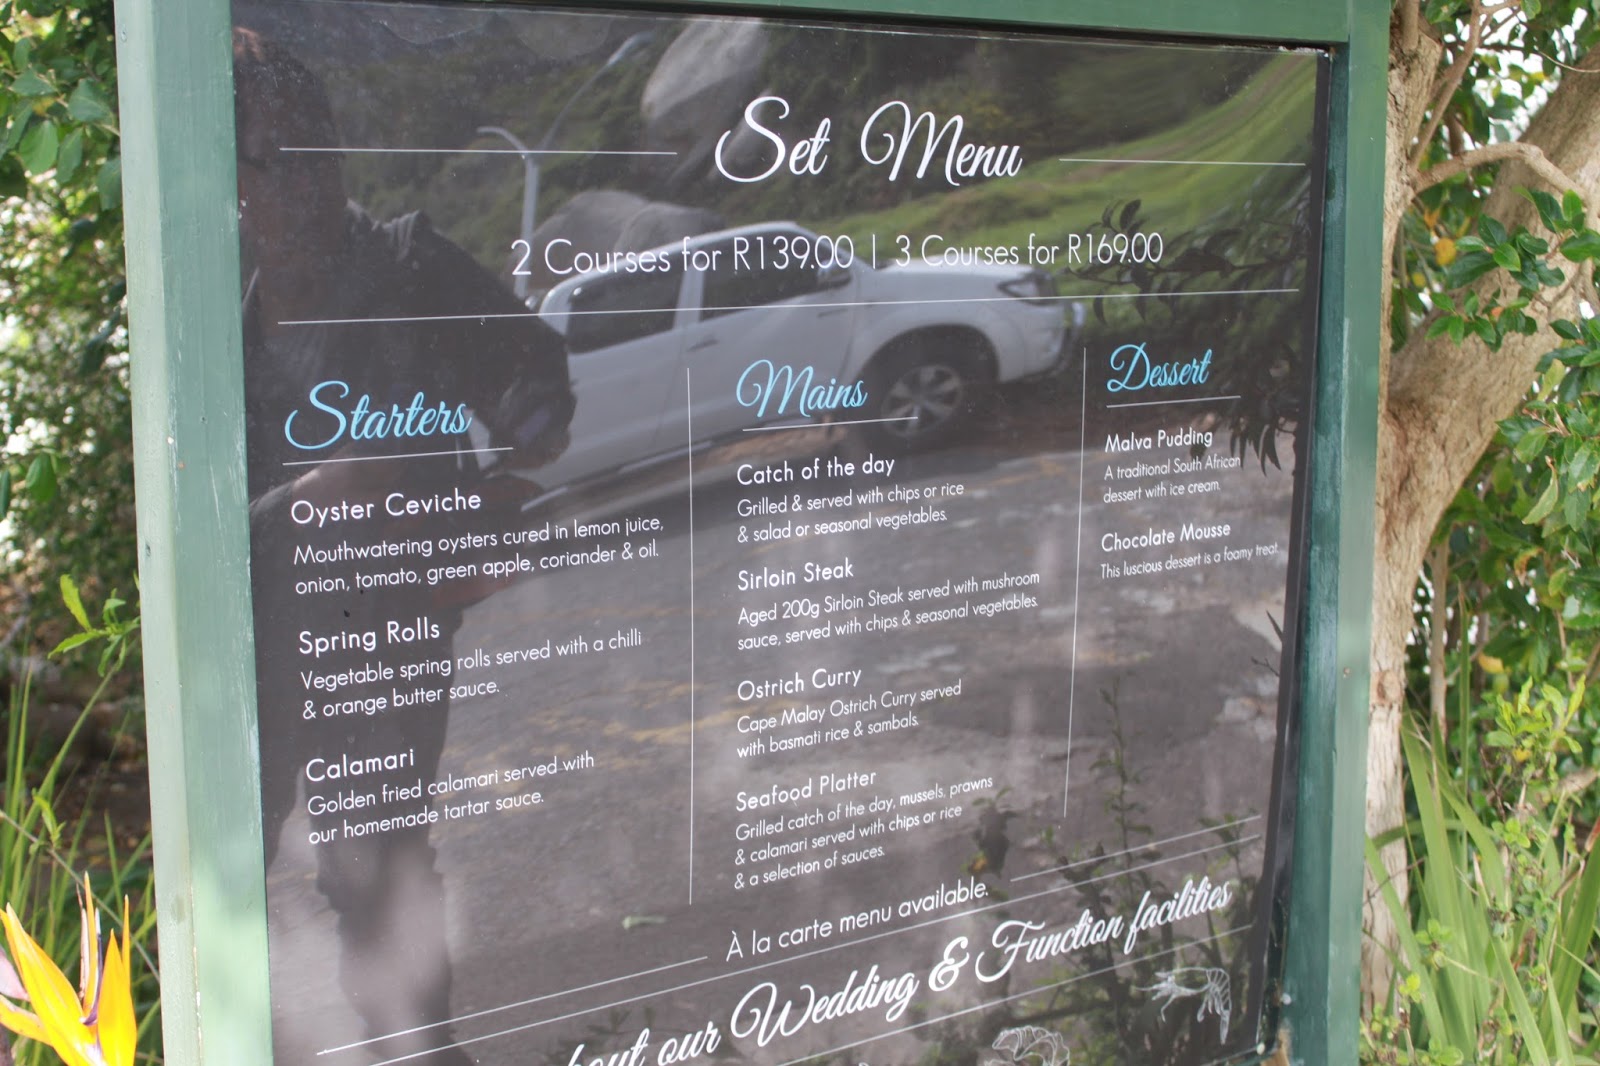 Set Menu
2 Courses for R139.00 | 3 Courses for R169.00
Starters
Oyster Ceviche
Mouthwatering oysters cured in lemon juice,
onion, tomato, green apple, coriander & oil.
Spring Rolls
Vegetable spring rolls served with a chilli
& orange butter sauce.
Calamari
Golden fried calamari served with
our homemade tartar sauce.
Mains
Catch of the day
Grilled & served with chips or rice
& salad or seasonal vegetables.
Sirloin Steak
Aged 200g Sirloin Steak served with mushroom
sauce, served with chips & seasonal vegetables.
Ostrich Curry
Cape Malay Ostrich Curry served
with basmati rice & sambals.
Seafood Platter
Grilled catch of the day, mussels, prawns
& calamari served with chips or rice
& a selection of sauces.
Dessert
Malva Pudding
A traditional South African
dessert with ice cream.
Chocolate Mousse
This luscious dessert is a foamy treat.
À la carte menu available.
our Wedding & Function facilities